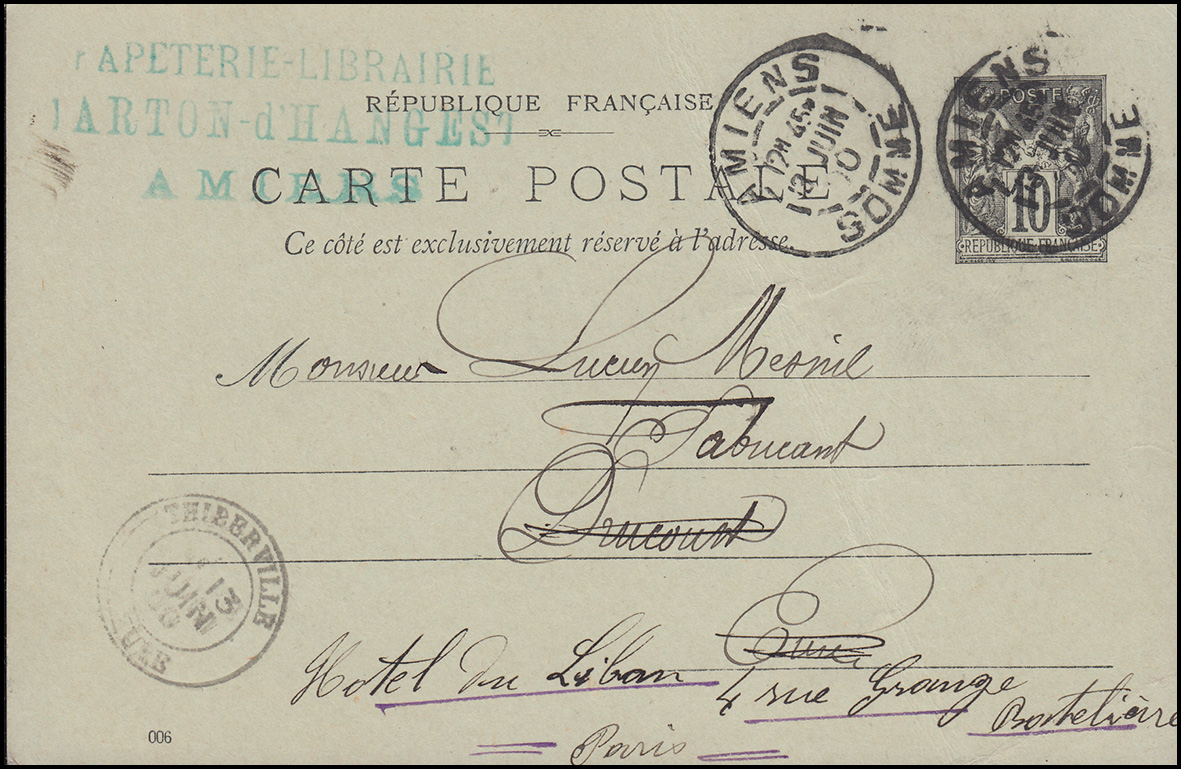 PAPETERIE-LIBRAIRIE
RÉPUBLIQUE FRANÇAISE
CARTON-d'HANGEST
AMIENS
CARTE POSTALE
Ce côté est exclusivement réservé à l'adresse.
AMIENS SOMME
12M 45
JUIN
POSTE
10
RÉPUBLIQUE FRANÇAISE
AMIENS SOMME
JUIN
Monsieur Lucien Mesnil
Fabricant
Drucourt
Eure
THIBERVILLE
13
JUIN
00
EURE
Hotel du Liban 4 rue Grange Bastelière
Paris
006